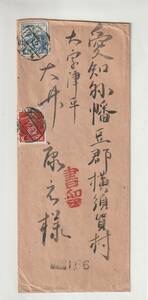 愛知縣幡豆郡横須賀村
大字津平
大井康之様
書留